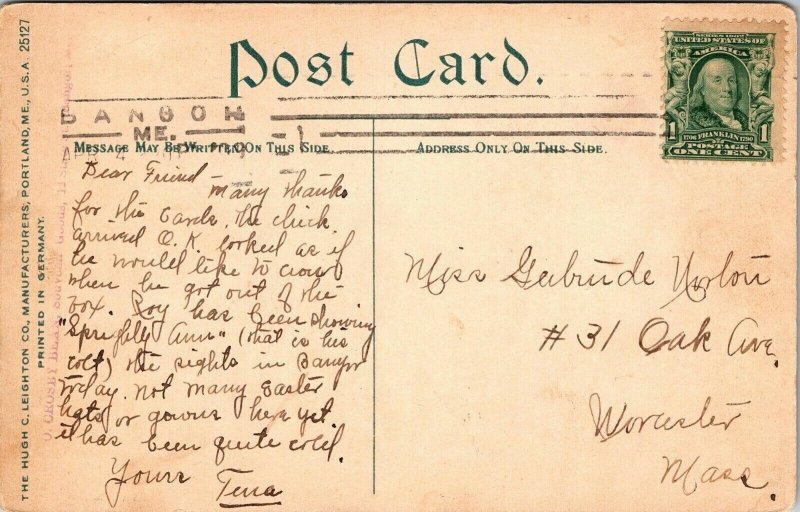 Post Card.
BANGOR
ME.
APR 4
MESSAGE MAY BE WRITTEN ON THIS SIDE
ADDRESS ONLY ON THIS SIDE.
SERIES 1902
UNITED STATES OF
AMERICA
1706 FRANKLIN 1790
1 1
POSTAGE
ONE CENT
Dear Friend - Many thanks
for the cards. The chick
arrived O.K. looked as if
he would like to crow
when he got out of the
box. Roy has been showing
"Sprightly Ann" (that is his
colt) the sights in Bangor
today. Not many Easter
hats or gowns here yet.
it has been quite cold.
Yours
Tena
Miss Gertrude
#31 Oak Ave.
Worcester
Mass.
THE HUGH C. LEIGHTON CO., MANUFACTURERS, PORTLAND, ME., U.S.A. 25127
PRINTED IN GERMANY.